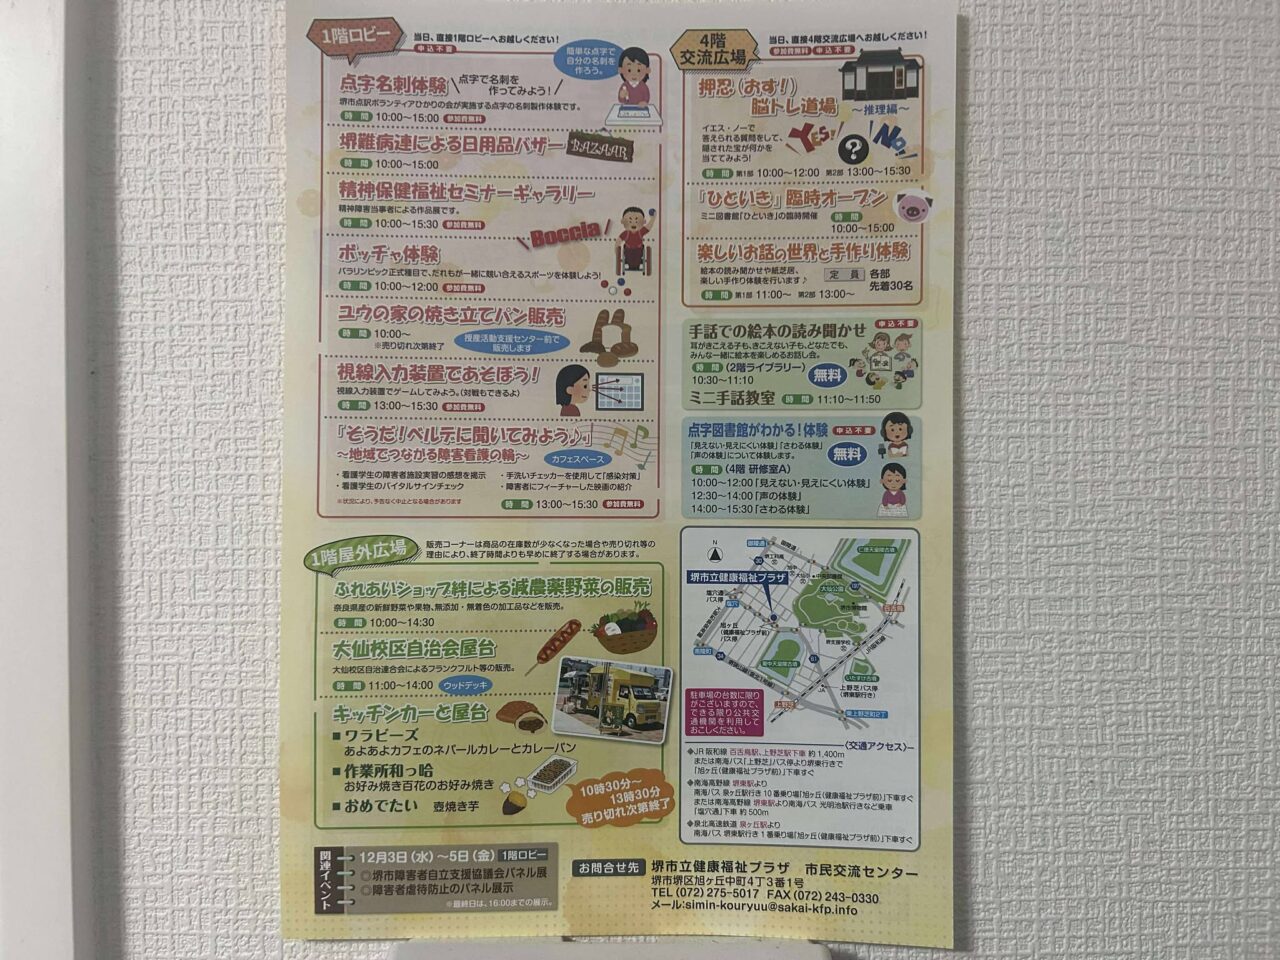 1階ロビー
当日、直接1階ロビーへお越しください!
申込不要
簡単な点字で
自分の名刺を
作ろう。
点字名刺体験
点字で名刺を
作ってみよう!
堺市点訳ボランティアひかりの会が実施する点字の名刺製作体験です。
時間 10:00〜15:00 参加費無料
堺難病連による日用品バザー
BAZAAR
時間 10:00〜15:00
精神保健福祉セミナーギャラリー
精神障害当事者による作品展です。
時間 10:00〜15:30 参加費無料
Boccia
ボッチャ体験
パラリンピック正式種目で、だれもが一緒に競い合えるスポーツを体験しよう!
時間 10:00〜12:00 参加費無料
ユウの家の焼き立てパン販売
時間 10:00〜
※売り切れ次第終了
授産活動支援センター前で
販売します
視線入力装置であそぼう!
視線入力装置でゲームしてみよう。(対戦もできるよ)
時間 13:00〜15:30 参加費無料
「そうだ!ベルテに聞いてみよう♪」
〜地域でつながる障害看護の輪〜
カフェスペース
・看護学生の障害者施設実習の感想を掲示
・看護学生のバイタルサインチェック
・手洗いチェッカーを使用して「感染対策」
・障害者にフィーチャーした映画の紹介
※状況により、予告なく中止となる場合があります
時間 13:00〜15:30 参加費無料
1階屋外広場
販売コーナーは商品の在庫数が少なくなった場合や売り切れ等の
理由により、終了時間よりも早めに終了する場合があります。
ふれあいショップ絆による減農薬野菜の販売
奈良県産の新鮮野菜や果物、無添加・無着色の加工品などを販売。
時間 10:00〜14:30
大仙校区自治会屋台
大仙校区自治連合会によるフランクフルト等の販売。
時間 11:00〜14:00 ウッドデッキ
キッチンカーと屋台
■ワラビーズ
あよあよカフェのネパールカレーとカレーパン
■作業所和っ哈
お好み焼き百花のお好み焼き
■おめでたい 壺焼き芋
10時30分〜
13時30分
売り切れ次第終了
関連イベント
12月3日(水)〜5日(金) 1階ロビー
◎堺市障害者自立支援協議会パネル展
◎障害者虐待防止のパネル展示
※最終日は、16:00までの展示。
4階
交流広場
当日、直接4階交流広場へお越しください!
参加費無料 申込不要
押忍(おす!)
脳トレ道場
〜推理編〜
イエス・ノーで
答えられる質問をして、
隠された宝が何かを
当ててみよう!
YES!
?
No!
時間 第1部 10:00〜12:00 第2部 13:00〜15:30
「ひといき」臨時オープン
ミニ図書館「ひといき」の臨時開催
時間
10:00〜15:00
楽しいお話の世界と手作り体験
絵本の読み聞かせや紙芝居、
楽しい手作り体験を行います♪
定員 各部
先着30名
時間 第1部 11:00〜 第2部 13:00〜
手話での絵本の読み聞かせ
申込不要
耳がきこえる子も、きこえない子も、どなたでも、
みんな一緒に絵本を楽しめるお話し会。
時間 (2階ライブラリー)
10:30〜11:10
無料
ミニ手話教室 時間 11:10〜11:50
点字図書館がわかる!体験 申込不要
「見えない・見えにくい体験」「さわる体験」
「声の体験」について体験します。
無料
時間 (4階 研修室A)
10:00〜12:00「見えない・見えにくい体験」
12:30〜14:00「声の体験」
14:00〜15:30「さわる体験」
N
御陵通
堺市立健康福祉プラザ
仁徳天皇陵古墳
大仙公園
堺市博物館
百舌鳥
塩穴通
バス停
旭ヶ丘
(健康福祉プラザ前)
バス停
堺支援学校
履中天皇陵古墳
いたすけ古墳
上野芝バス停
(堺東駅行き)
上野芝
JR
JR阪和線
駐車場の台数に限り
がございますので、
できる限り公共交
通機関を利用して
おこしください。
〈交通アクセス〉
◆JR阪和線 百舌鳥駅、上野芝駅下車 約1,400m
または南海バス「上野芝」バス停より堺東行きで
「旭ヶ丘(健康福祉プラザ前)」下車すぐ
◆南海高野線 堺東駅より
南海バス 泉ヶ丘駅行き 10番乗り場「旭ヶ丘(健康福祉プラザ前)」下車すぐ
または南海高野線 堺東駅より南海バス 光明池駅行きなど乗車
「塩穴通」下車 約500m
◆泉北高速鉄道 泉ヶ丘駅より
南海バス 堺東駅行き 1番乗り場「旭ヶ丘(健康福祉プラザ前)」下車すぐ
お問合せ先
堺市立健康福祉プラザ 市民交流センター
堺市堺区旭ヶ丘中町4丁3番1号
TEL(072)275-5017 FAX(072)243-0330
メール:simin-kouryuu@sakai-kfp.info